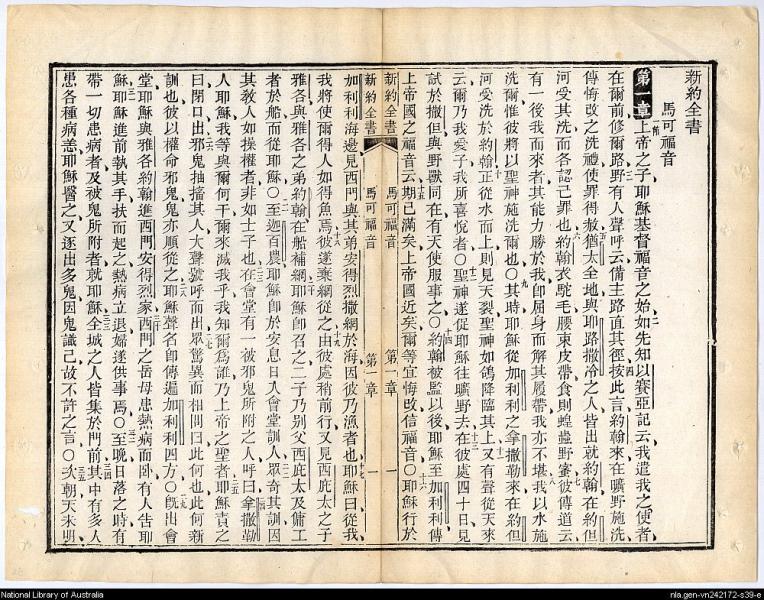 新約全書
馬可福音
第一章上帝之子耶穌基督福音之始如先知以賽亞記云我遣我之使者
在爾前修爾路野有人聲呼云備主路直其徑按此言約翰來在曠野施洗
傳悔改之洗禮使罪得赦猶太全地與耶路撒冷之人皆出就約翰在約但
河受其洗而各認己罪也約翰衣駝毛腰束皮帶食則蝗蟲野蜜彼傳道云
有一後我而來者其能力勝於我卽屈身而解其履帶我亦不堪我以水施
洗爾惟彼將以聖神施洗爾也〇其時耶穌從加利利之拿撒勒來在約但
河受洗於約翰正從水而上則見天裂聖神如鴿降臨其上又有聲從天來
云爾乃我愛子我所喜悅者〇聖神遂促耶穌往曠野去在彼處四十日見
試於撒但與野獸同在有天使服事之〇約翰被監以後耶穌至加利利傳
上帝國之福音云期已滿矣上帝國近矣爾等宜悔改信福音〇耶穌行於
新約全書 馬可福音 第一章 一
新約全書 馬可福音 第一章 一
加利利海邊見西門與其弟安得烈撒網於海因彼乃漁者也耶穌曰從我
我將使爾得人如得魚焉彼遂棄網從之由彼處稍前行又見西庇太之子
雅各與雅各之弟約翰在船補網耶穌卽召之二子乃別父西庇太及傭工
者於船而從耶穌〇至迦百農耶穌卽於安息日入會堂訓人眾奇其訓因
其教人如操權者非如士子也在會堂有一被邪鬼所附之人呼曰拿撒勒
人耶穌我等與爾何干爾來滅我乎我知爾為誰乃上帝之聖者耶穌責之
曰閉口出邪鬼抽搐其人大聲號呼而出眾驚異而相問曰此何也此何新
訓也彼以權命邪鬼鬼亦順從之耶穌聲名卽傳遍加利利四方〇旣出會
堂耶穌與雅各約翰進西門安得烈家西門之岳母患熱病而臥有人告耶
穌耶穌進前執其手扶而起之熱病立退婦遂供事焉〇至晚日落之時有
帶一切患病者及被鬼所附者就耶穌全城之人皆集於門前其中有多人
患各種病恙耶穌醫之又逐出多鬼因鬼識己故不許之言〇次朝天未明
National Library of Australia
nla.gen-vn242172-s39-e